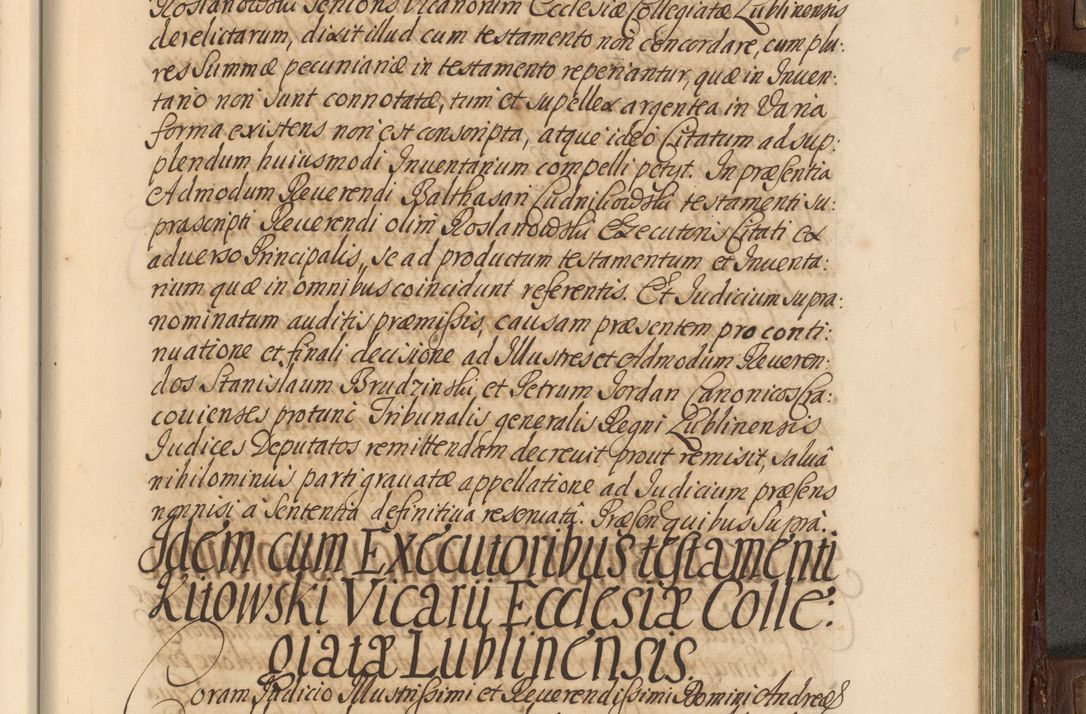 Roslanowski Senioris Vicariorum Ecclesiæ Collegiatæ Lublinensis
derelictarum, dixit illud cum testamento non concordare, cum plu:
res Summæ pecuniariæ in testamento reperiantur, quæ in Inven:
tario non sunt connotatæ, tum et supellex argentea in varia
forma existens non est conscripta, atque ideo Citatum ad sup:
plendum huiusmodi Inventarium compelli petyt. In præsentia
Admodum Reuerendi Balthasari Ludnikowski testamenti su:
prascripti Reuerendi olim Roslanowski Executoris Citati ex
aduerso Principalis, se ad productum testamentum et Inuenta:
rium quæ in omnibus coincidunt referentis. Et Iudicium supra:
nominatum auditis præmissis, causam præsentem pro conti:
nuatione et finali decisione ad Illustres et Admodum Reueren:
dos Stanislaum Brudzinski, et Petrum Jordan Canonicos Cra:
couienses protunc Tribunalis generalis Regni Lublinensis
Iudices Deputatos remittendam decreuit, prout remisit, saluâ
nihilominus parti grauatæ appellatione ad Iudicium præsens
nonnisi à Sententia definitiua reseruatâ. Præsen: quibus supra.
Idem cum Executoribus testamenti
Kitowski Vicarii Ecclesiæ Colle:
giatæ Lublinensis.
Coram Iudicio Illustrissimi et Reuerendissimi Domini Andreæ